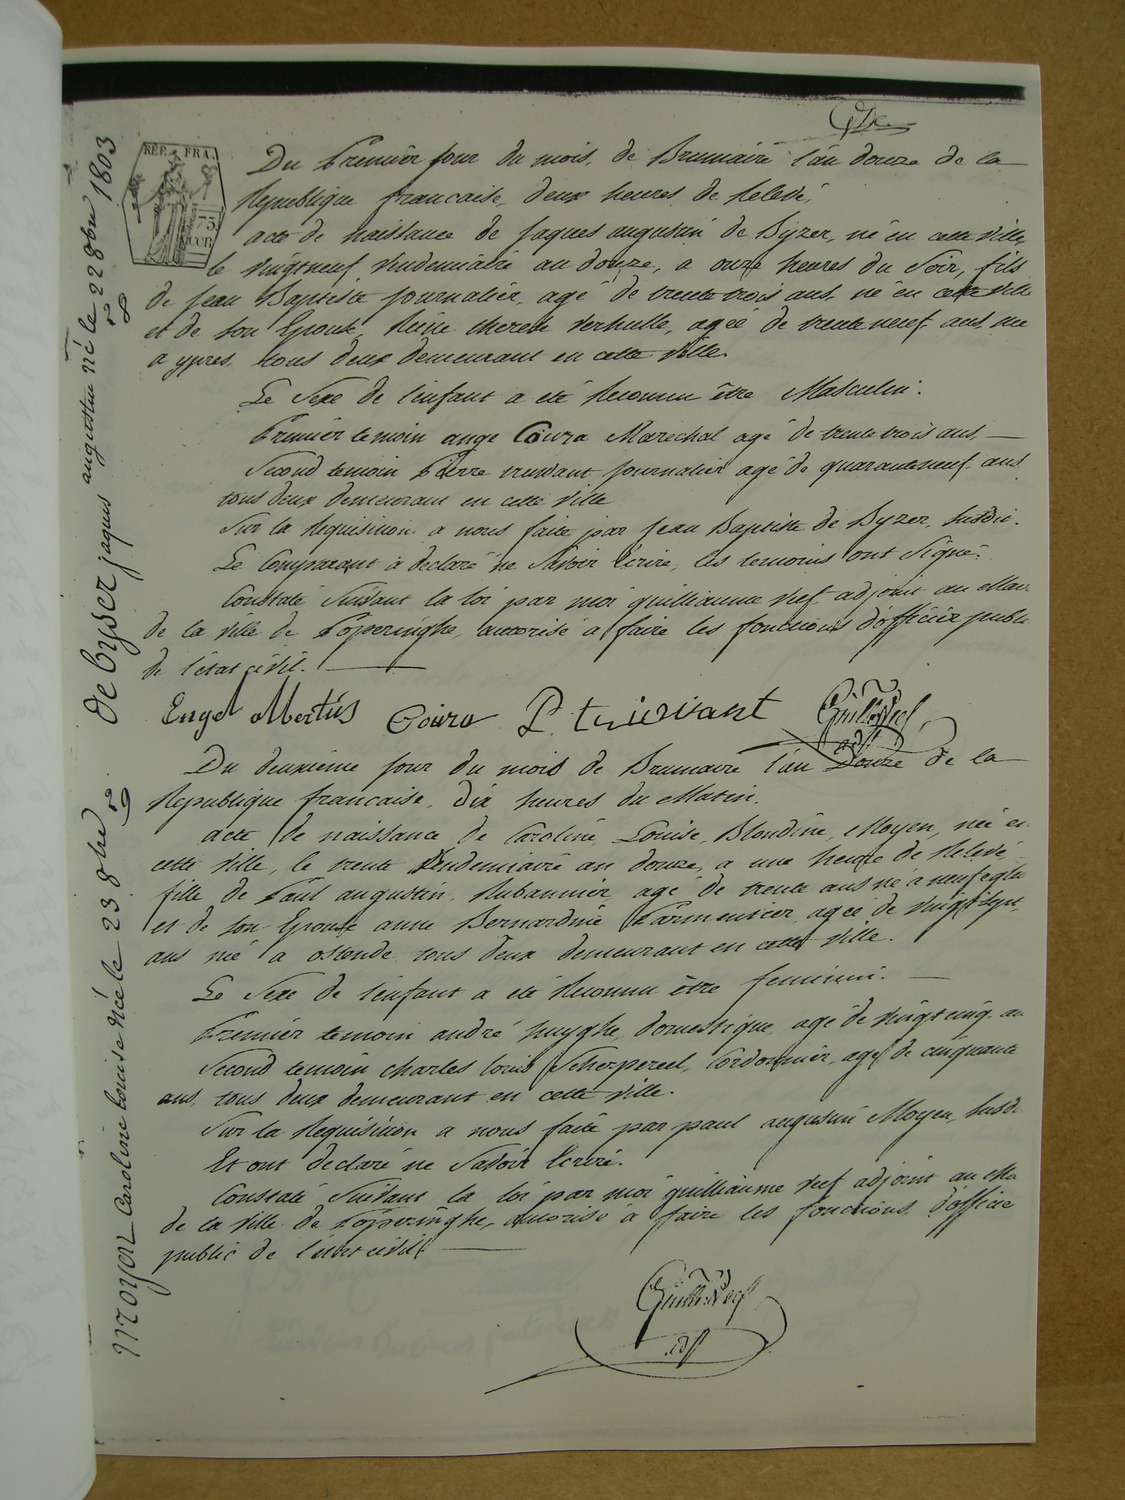 REP. FRA.
75
Du Premier jour du mois de Brumaire l'an douze de la
Republique francaise, deux heures de Relevé,
acte de naissance de Jaques augustin de Byzer, né en cette ville,
le vingtneuf vendemiaire an douze, a onze heures du Soir, fils
de Jean Baptiste journalier, agé de trente trois ans, né en cette ville
et de son Epouse, Reine therese verhulle, agée de trente neuf ans, née
a ypres, tous deux demeurant en cette ville.
Le Sexe de l'enfant a été Reconnu être Masculin.
Premier temoin ange Coura Marechal agé de trente trois ans,
Second temoin Pierre truwant journalier agé de quaranteneuf ans
tous deux demeurant en cette ville
Sur la Requisition a nous faite par Jean Baptiste de Byzer, Susdit.
Le Comparant a declaré ne Savoir Ecrire, les temoins ont Signé.
Constaté Suivant la loi par moi guilliaume veef adjoint au Mai
de la ville de Poperinghe, autorisé a faire les fonctions d'officier publi
de l'état civil.
Engel Mertus Coura P. truivant Guill: Veef
adj.
Du deuxième jour du mois de Brumaire l'an douze de la
Republique francaise, dix heures du Matin,
acte de naissance de Caroline Louise Blondine Moyen, née en
cette ville, le trente Vendemiaire an douze, a une heure de Relevé
fille de Paul augustin, Rubannier, agé de trente ans né a neufegli
et de son Epouse anne Bernardine Parmentier agée de vingt Sept
ans née a ostende tous deux demeurant en cette ville.
Le Sexe de l'enfant a été Reconnu être feminin.
Premier temoin andré huyghe, domestique agé de vingt cinq an
Second temoin charles louis Scherpereel, Cordonnier, agé de cinquante
ans, tous deux demeurant en cette ville.
Sur la Requisition a nous faite par paul augustin Moyen, Susdi
Et ont declaré ne Savoir Ecrire.
Constaté Suivant la loi par moi guilliaume veef adjoint au Ma
de la ville de Poperinghe, autorisé a faire les fonctions d'officie
public de l'état civil
Guill: Veef
adj.
de byser jaques augustin né le 22 8bre 1803
moyen Caroline louise née le 23 8bre